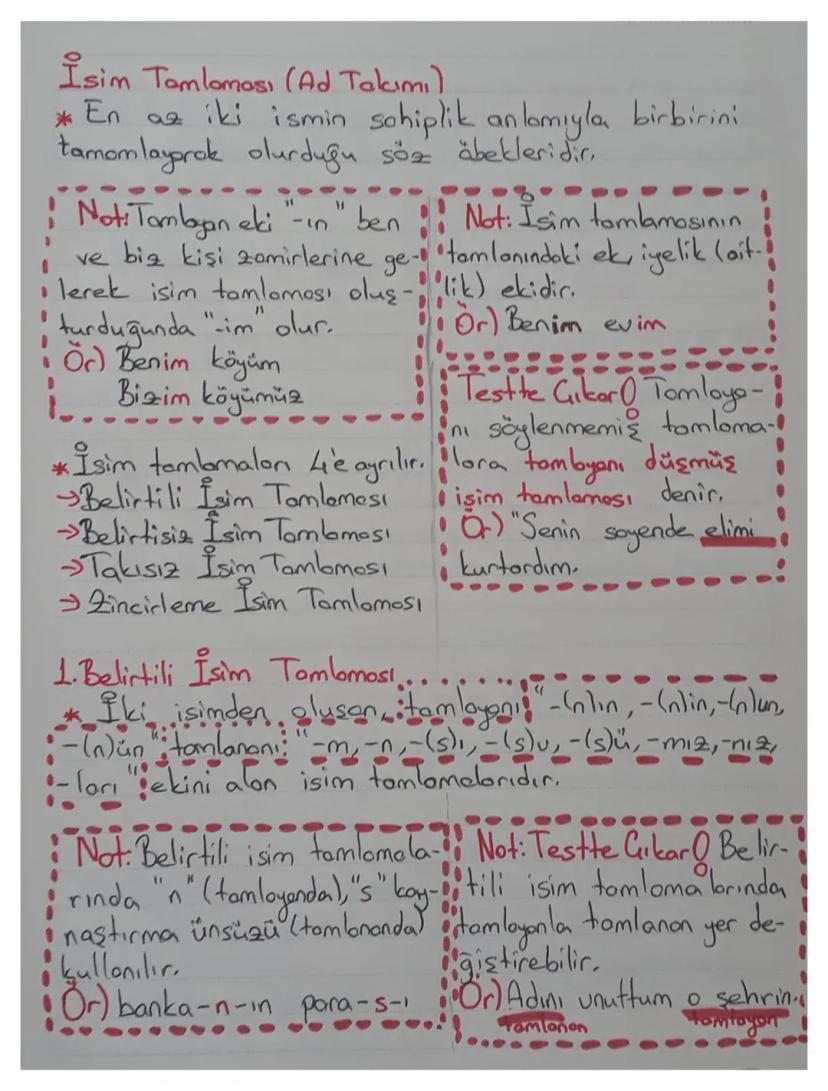 İsim Tamlaması (Ad Takımı)
* En az iki ismin sahiplik anlamıyla birbirini
tamamlayarak olurduğu söz äbekleridir.
Not: Tamlayan eki "-ın" ben
ve biz kişi zamirlerine ge-
lerek isim tamlaması oluş-
turduğunda "-im" olur.
Ör) Benim köyüm
Bizim köyümüz
Not: İsim tamlamasının
tamlanındaki ek, iyelik (ait-
lik) ekidir.
Ör) Benim evim
Testte Çıkar! Tamlaya-
nı söylenmemiş tamlama-
lara tamlayanı düşmüş
isim tamlaması denir.
Ör) "Senin sayende elimi
kurtardım.
* İsim tamlamaları 4'e ayrılır.
→Belirtili İsim Tamlaması
→Belirtisiz İsim Tamlaması
→Takısız İsim Tamlaması
→ Zincirleme İsim Tamlaması
1. Belirtili İsim Tamlaması
* İki isimden oluşan, tamlayanı "-(n)ın, -(n)in, -(n)un,
-(n)ün" tamlananı "-m, -n, -(s)ı, -(s)u, -(s)ü, -mız, -nız,
-ları" ekini alan isim tamlamalarıdır.
Not: Belirtili isim tamlamala-
rında "n" (tamlayanda), "s" kay-
naştırma ünsüzü (tamlananda)
kullanılır.
Ör) banka-n-ın para-s-ı
Not: Testte Çıkar! Belir-
tili isim tamlamalarında
tamlayanla tamlanan yer de-
ğiştirebilir.
Ör) Adını unuttum o şehrin.
tamlanan tamlayan